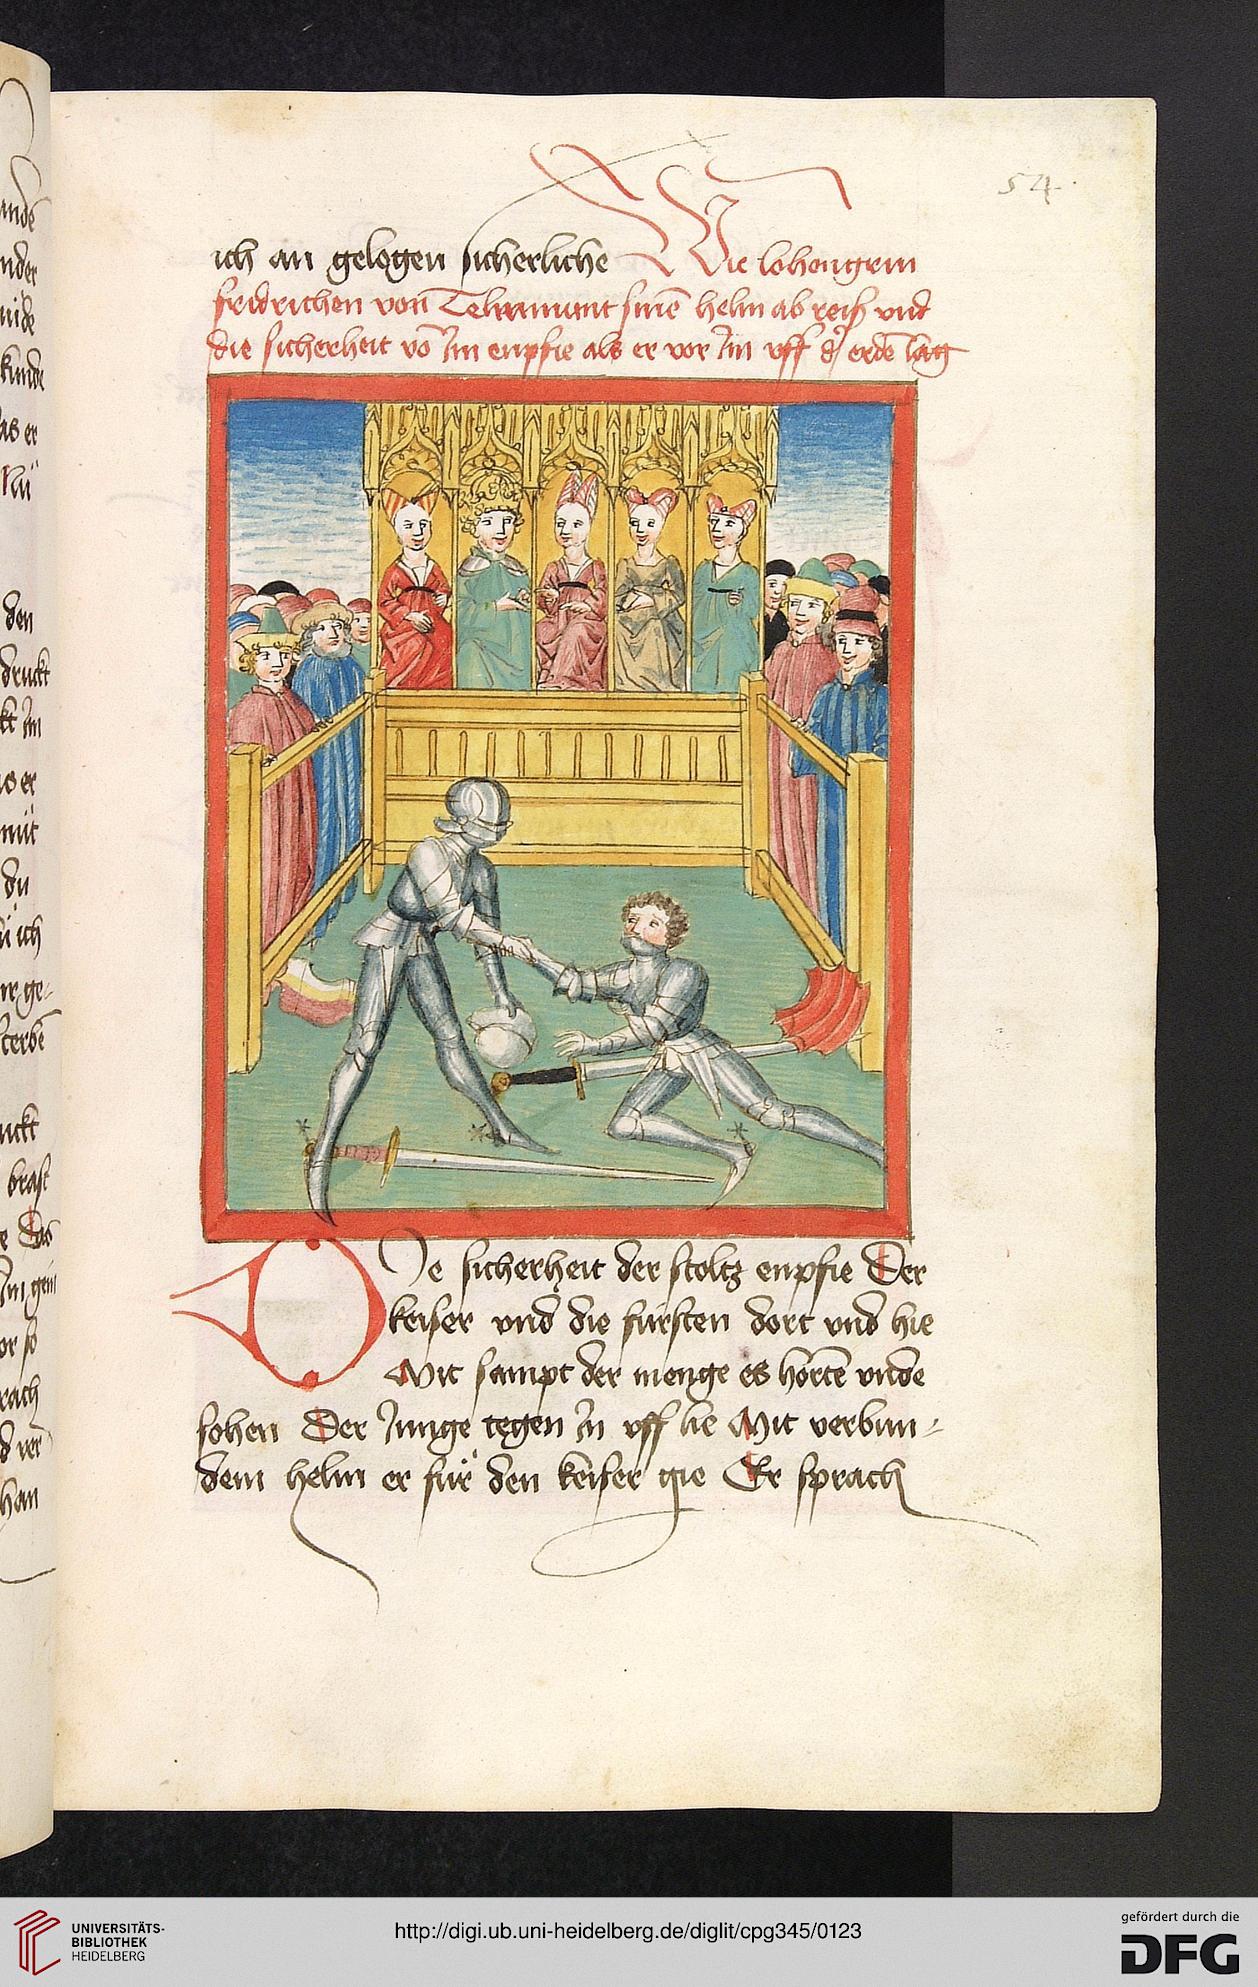 54.
ich an gelogen sicherliche Wie lohengrin
fridrichen von Telramunt sinē helm ab reiß vnd
die sicherheit vō Im enpfie als er vor Im vff d' erde lag
De sicherheit der stoltz enpfie Der
keiser vnd die fursten dort vnd hie
Mit sampt der menge es horte vnde
sohen Der Junge tegen In vff lie Mit verbun⸗
dem helm er für den keiser gie Er sprach
ande
nder
kunde
as er
den
druckt
kt Im
as er
müt
du
ich
ge⸗
sterbē
uckt
brast
e Das
Im
or so
rach
han
UNIVERSITÄTS-
BIBLIOTHEK
HEIDELBERG
http://digi.ub.uni-heidelberg.de/diglit/cpg345/0123
gefördert durch die
DFG